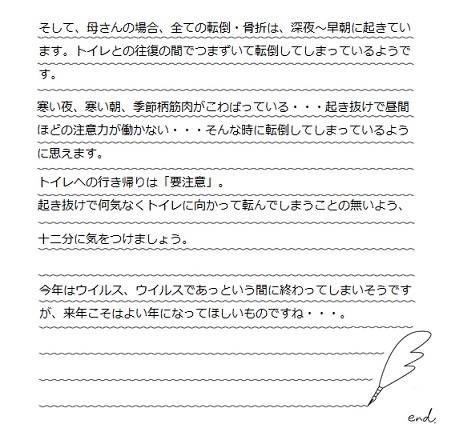 そして、母さんの場合、全ての転倒・骨折は、深夜～早朝に起きてい
ます。トイレとの往復の間でつまずいて転倒してしまっているようで
す。
寒い夜、寒い朝、季節柄筋肉がこわばっている・・・起き抜けで昼間
ほどの注意力が働かない・・・そんな時に転倒してしまっているよう
に思えます。
トイレへの行き帰りは「要注意」。
起き抜けで何気なくトイレに向かって転んでしまうことの無いよう、
十二分に気をつけましょう。
今年はウイルス、ウイルスであっという間に終わってしまいそうです
が、来年こそはよい年になってほしいものですね・・・。
end.